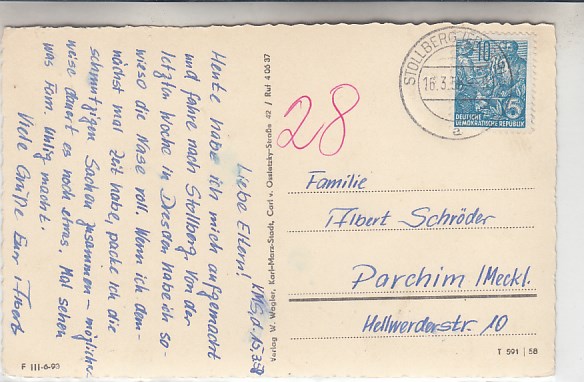 KMSt, d. 15.3.58
Liebe Eltern!
Heute habe ich mich aufgemacht
und fahre nach Stollberg. Von der
letzten Woche in Dresden habe ich so-
wieso die Nase voll. Wenn ich dem-
nächst mal Zeit habe, packe ich die
schmutzigen Sachen zusammen – möglicher-
weise dauert es noch etwas. Mal sehen
was Fam. Uhlig macht.
Viele Grüße Euer
F III-6-90
Verlag W. Wagler, Karl-Marx-Stadt, Carl v. Ossietzky-Straße 42 / Ruf 40637
28
STOLLBERG
16.3.58
a
10
5
DEUTSCHE
DEMOKRATISCHE REPUBLIK
Familie
Albert Schröder
Parchim /Meckl.
Hellwerderstr. 10
T 591 | 58